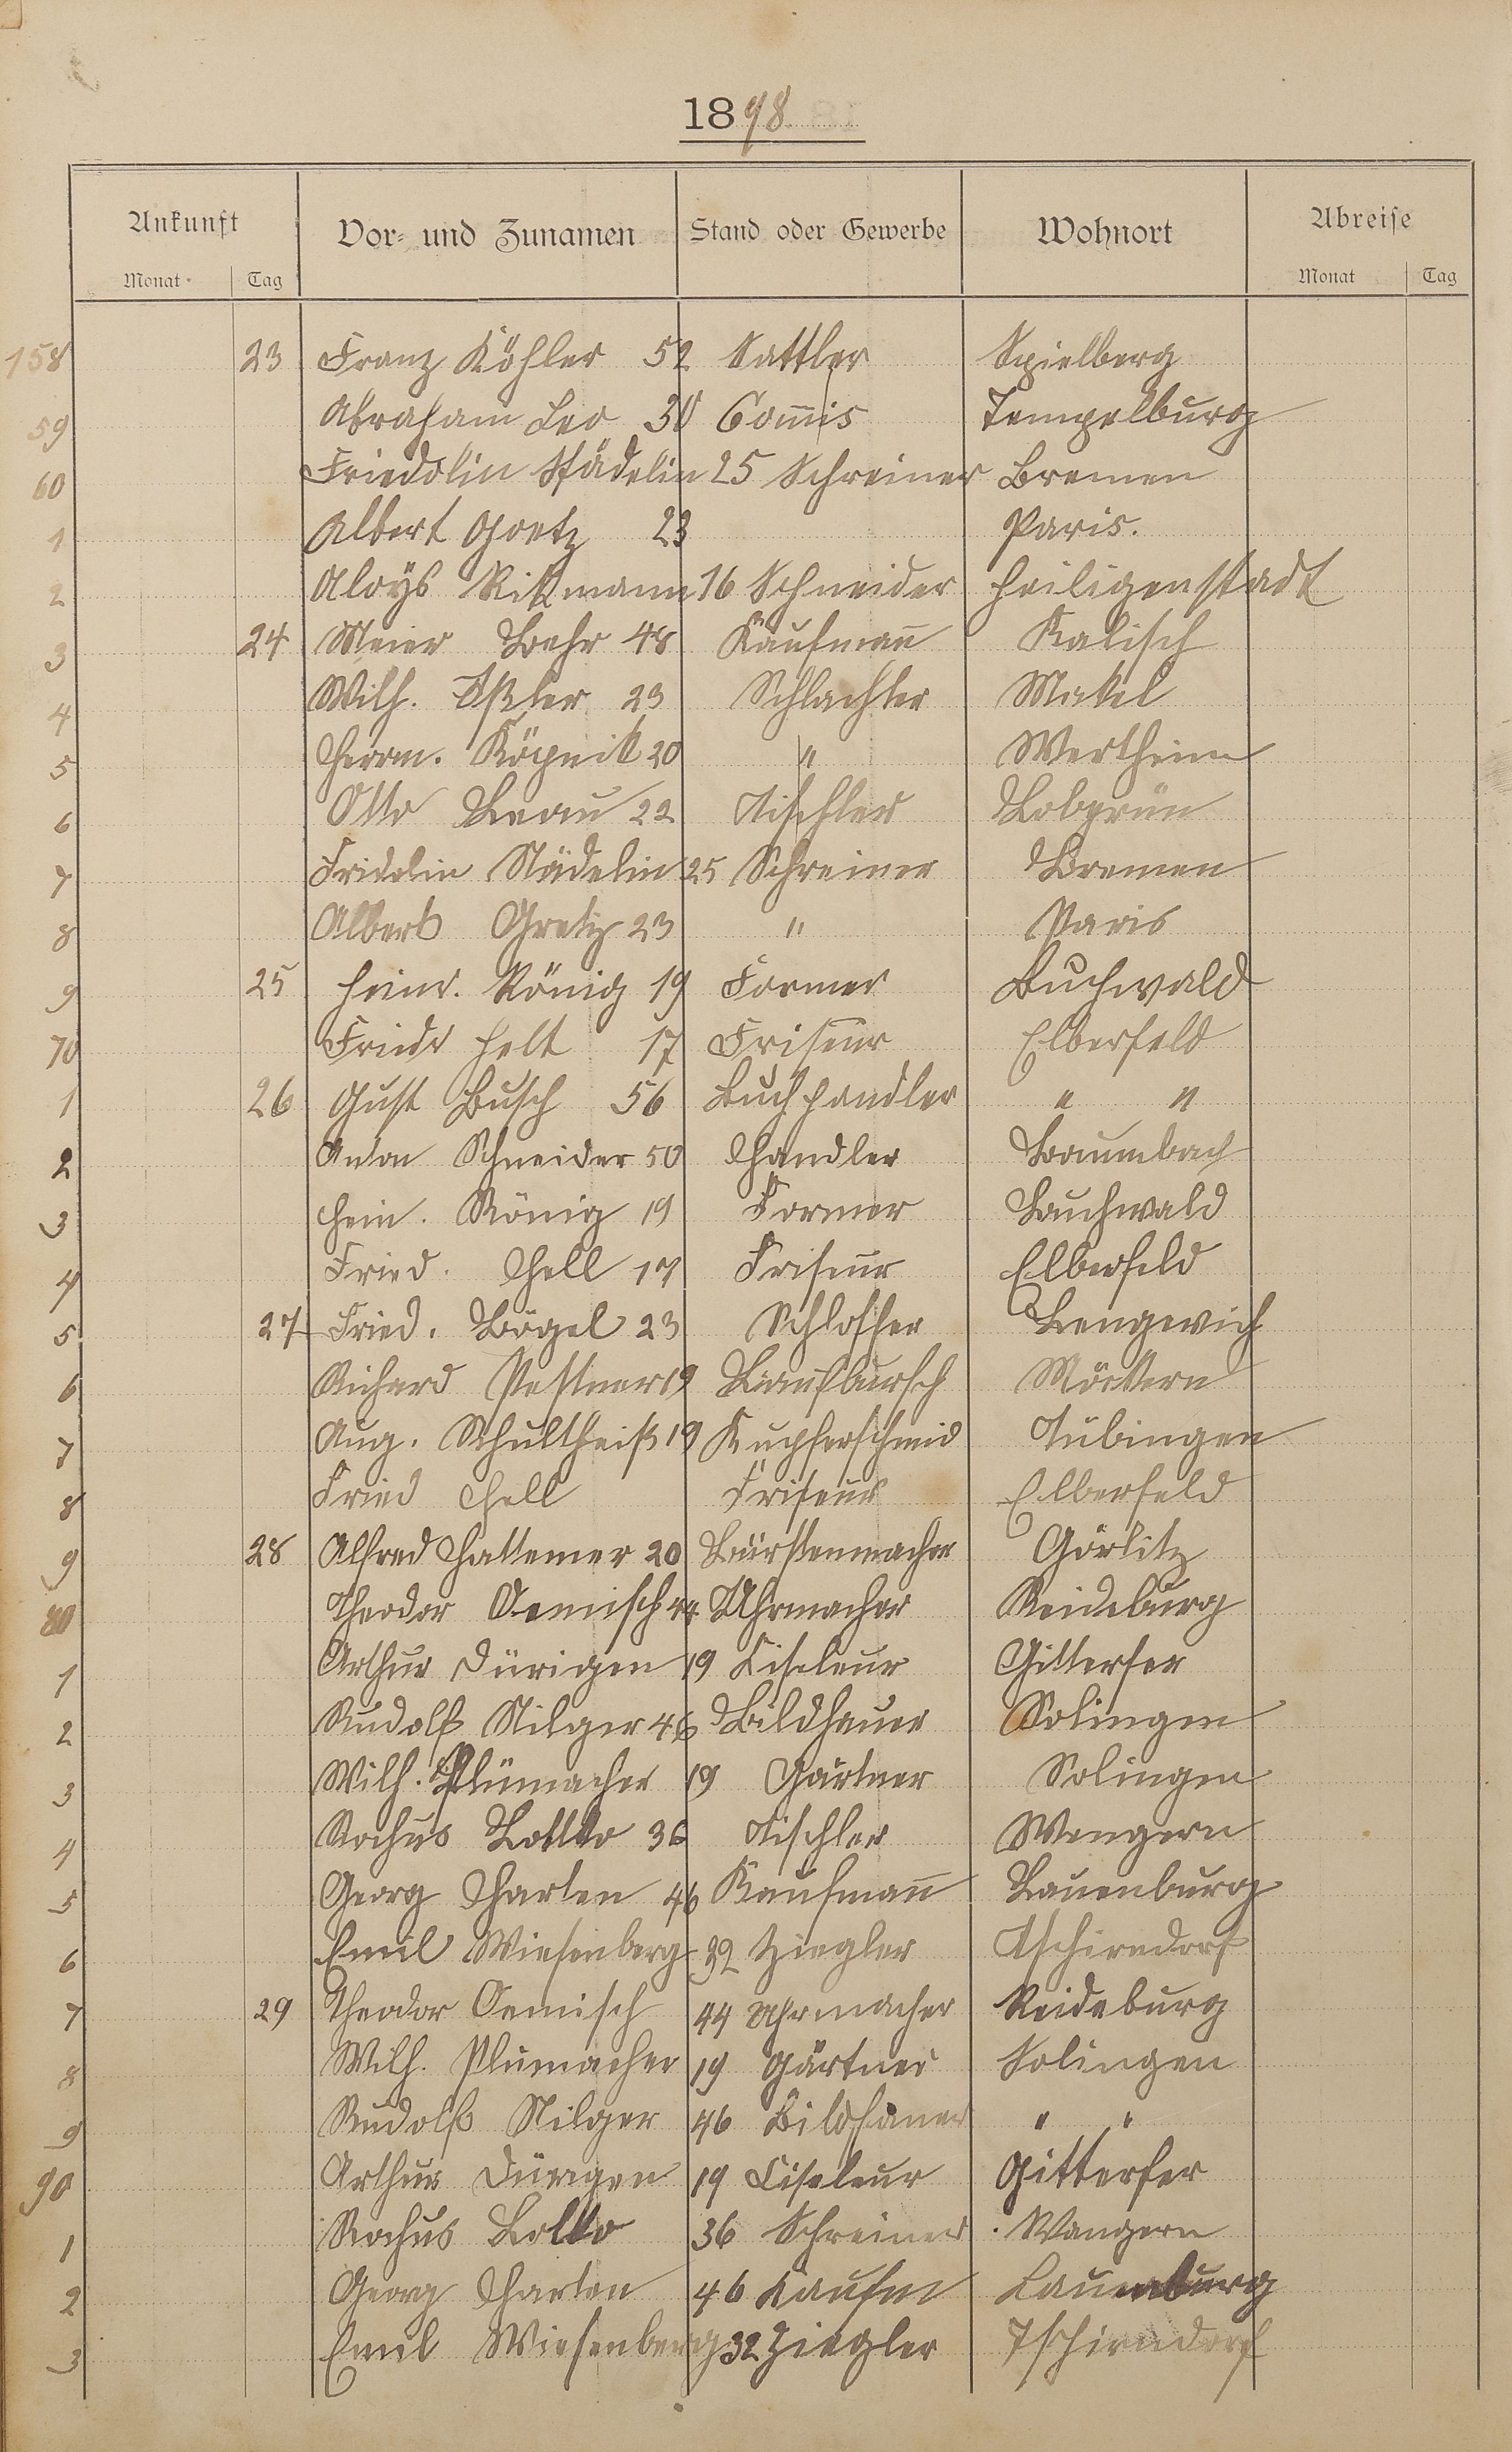 1898
Ankunft Vor- und Zunamen Stand oder Gewerbe Wohnort Abreise
Monat Tag Monat Tag
158 23 Franz Köhler 52 Sattler Spielberg
59 Abraham Leo 30 Com̅is Tempelburg
60 Friedolin Städelin 25 Schreiner Bremen
1 Albert Goetz 23 Paris.
2 Aloÿs Rikmann 16 Schneider Heiligenstadt
3 24 Meier Baehr 48 Kaufman̅ Kalisch
4 Wilh. 23 Schlachter
5 Herrm. Köpnik 20 " Wertheim
6 Otto 22 Tischler Lobgrün
7 Fridolin Städelin 25 Schreiner Bremen
8 Albert Goetz 23 " Paris
9 25 Heinr. König 19 Former Buchwald
70 Friedr Helt 17 Friseur Elberfeld
1 26 Gust Busch 56 Buchhandler " "
2 Anton Schneider 50 Handler Baumbach
3 Hein. König 19 Former Buchwald
4 Fried. Hell 17 Friseur Elberfeld
5 27 Fried. Bögel 23 Schlosser Lengwich
6 Richard Pestner 19 Laufbursch Möckern
7 Aug. Schultheiß 19 Kupferschmid Tübingen
8 Fried Hell Friseur Elberfeld
9 28 Alfred Hattemer 20 Bürstenmacher Görlitz
80 Theodor Oemisch 44 Uhrmacher Reideburg
1 Arthur Dürigen 19 Ciseleur Gitterser
2 Rudolf Stilger 46 Bildhauer Solingen
3 Wilh. Plümacher 19 Gärtner Solingen
4 Rochus Lottko 36 Tischler Wangern
5 Georg Harten 46 Kaufman̅ Lauenburg
6 Emil Wiesenberg 32 Ziegler Tschirndorf
7 29 Theodor Oemisch 44 Uhrmacher Reideburg
8 Wilh. Plümacher 19 Gärtner Solingen
9 Rudolf Stilger 46 Bildhauer " "
90 Arthur Dürigen 19 Ciseleur Gitterser
1 Rochus Lottko 36 Schreiner Wangern
2 Georg Harten 46 Kaufm Lauenburg
3 Emil Wiesenberg 32 Ziegler Tschirndorf